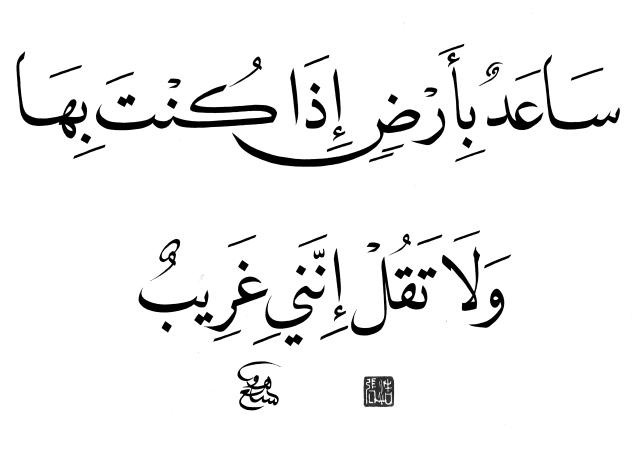 سَاعَدٌ بِأَرْضِ إِذَا كُنْتَ بِهَا
وَلَا تَقُلْ إِنَّنِي غَرِيبٌ